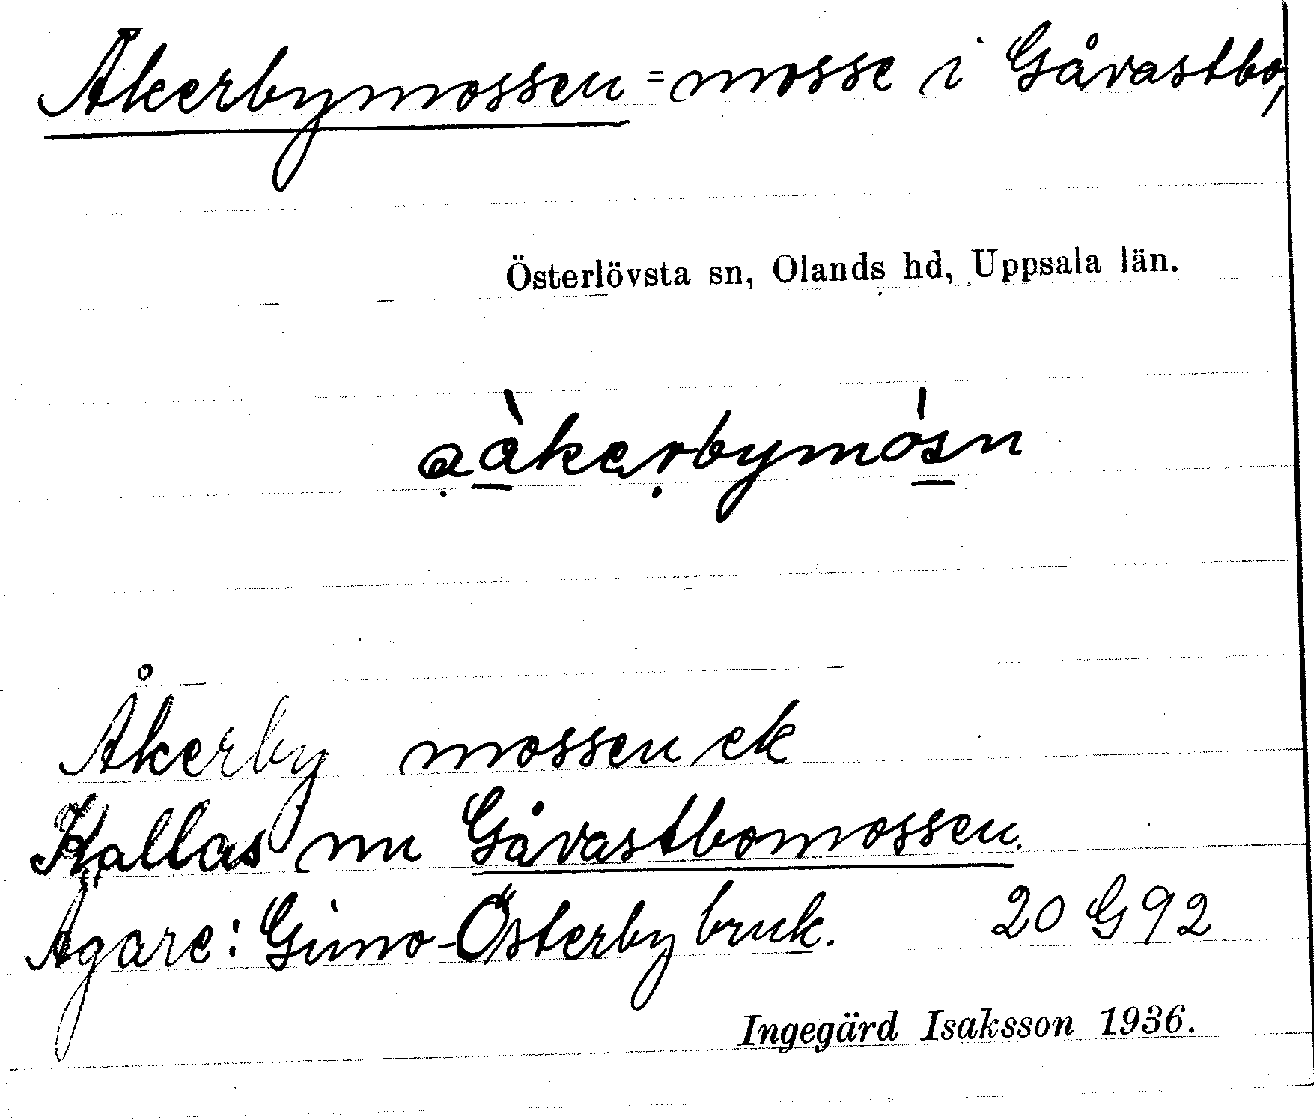 Åkerbymossen = mosse i Gåvastbo,
Österlövsta sn, Olands hd, Uppsala län.
Åkerby mossen ek
Kallas nu Gåvastbomossen.
Ägare: Gimo-Österby bruk. 20 G 92
Ingegärd Isaksson 1936.